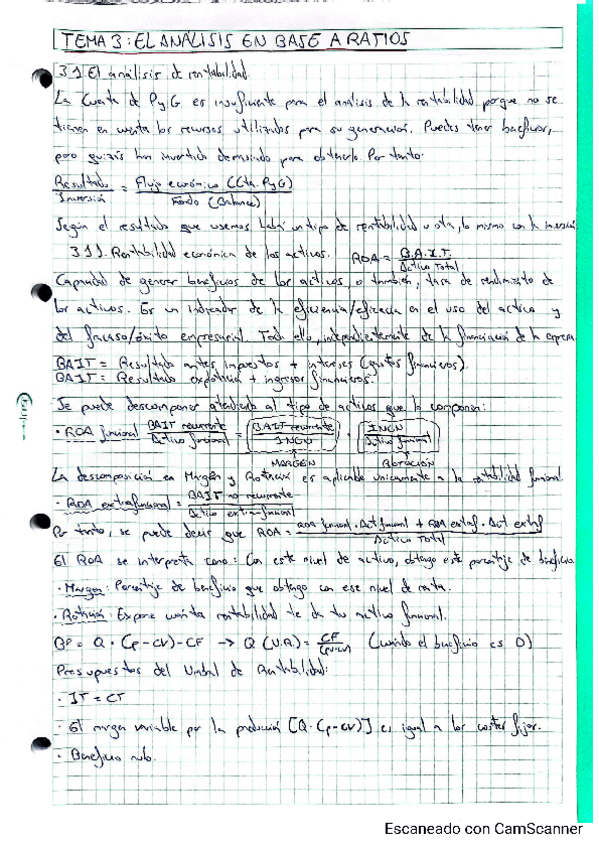 TEMA 3: EL ANÁLISIS EN BASE A RATIOS
3.1 El análisis de rentabilidad.
La Cuenta de PyG es insuficiente para el análisis de la rentabilidad porque no se
tienen en cuenta los recursos utilizados para su generación. Puedes tener beneficios,
pero quizás has invertido demasiado para obtenerlo. Por tanto:
Resultado / Inversión = Flujo económico (Cta. PyG) / Fondo (Balance)
Según el resultado que usemos habrá un tipo de rentabilidad u otra, lo mismo con la inversión.
3.1.1. Rentabilidad económica de los activos. ROA = B.A.I.T. / Activo Total
Capacidad de generar beneficios de los activos, o también, tasa de rendimiento de
los activos. Es un indicador de la eficiencia/eficacia en el uso del activo y
del fracaso/éxito empresarial. Todo ello, independientemente de la financiación de la empresa.
BAIT = Resultado antes impuestos + intereses (gastos financieros).
BAIT = Resultado explotación + ingresos financieros.
Se puede descomponer atendiendo al tipo de activos que lo componen:
· ROA funcional = BAIT recurrente / Activo funcional = BAIT recurrente / INCN · INCN / Activo funcional
MARGEN ROTACIÓN
La descomposición en Margen y Rotación es aplicable únicamente a la rentabilidad funcional.
· ROA extrafuncional = BAIT no recurrente / Activo extrafuncional
Por tanto, se puede decir que ROA = ROA funcional · Act funcional + ROA extraf · Act extraf / Activo Total
El ROA se interpreta como: Con este nivel de activo, obtengo este porcentaje de beneficio.
· Margen: Porcentaje de beneficio que obtengo con ese nivel de venta.
· Rotación: Expone cuánta rentabilidad de tu activo funcional.
Bº = Q · (p - cv) - CF → Q (U.R.) = CF / (p-cv) (cuando el beneficio es 0)
Presupuestos del Umbral de Rentabilidad:
· IT = CT
· El margen variable por la producción [Q · (p-cv)] es igual a los costes fijos.
· Beneficio nulo.
Escaneado con CamScanner